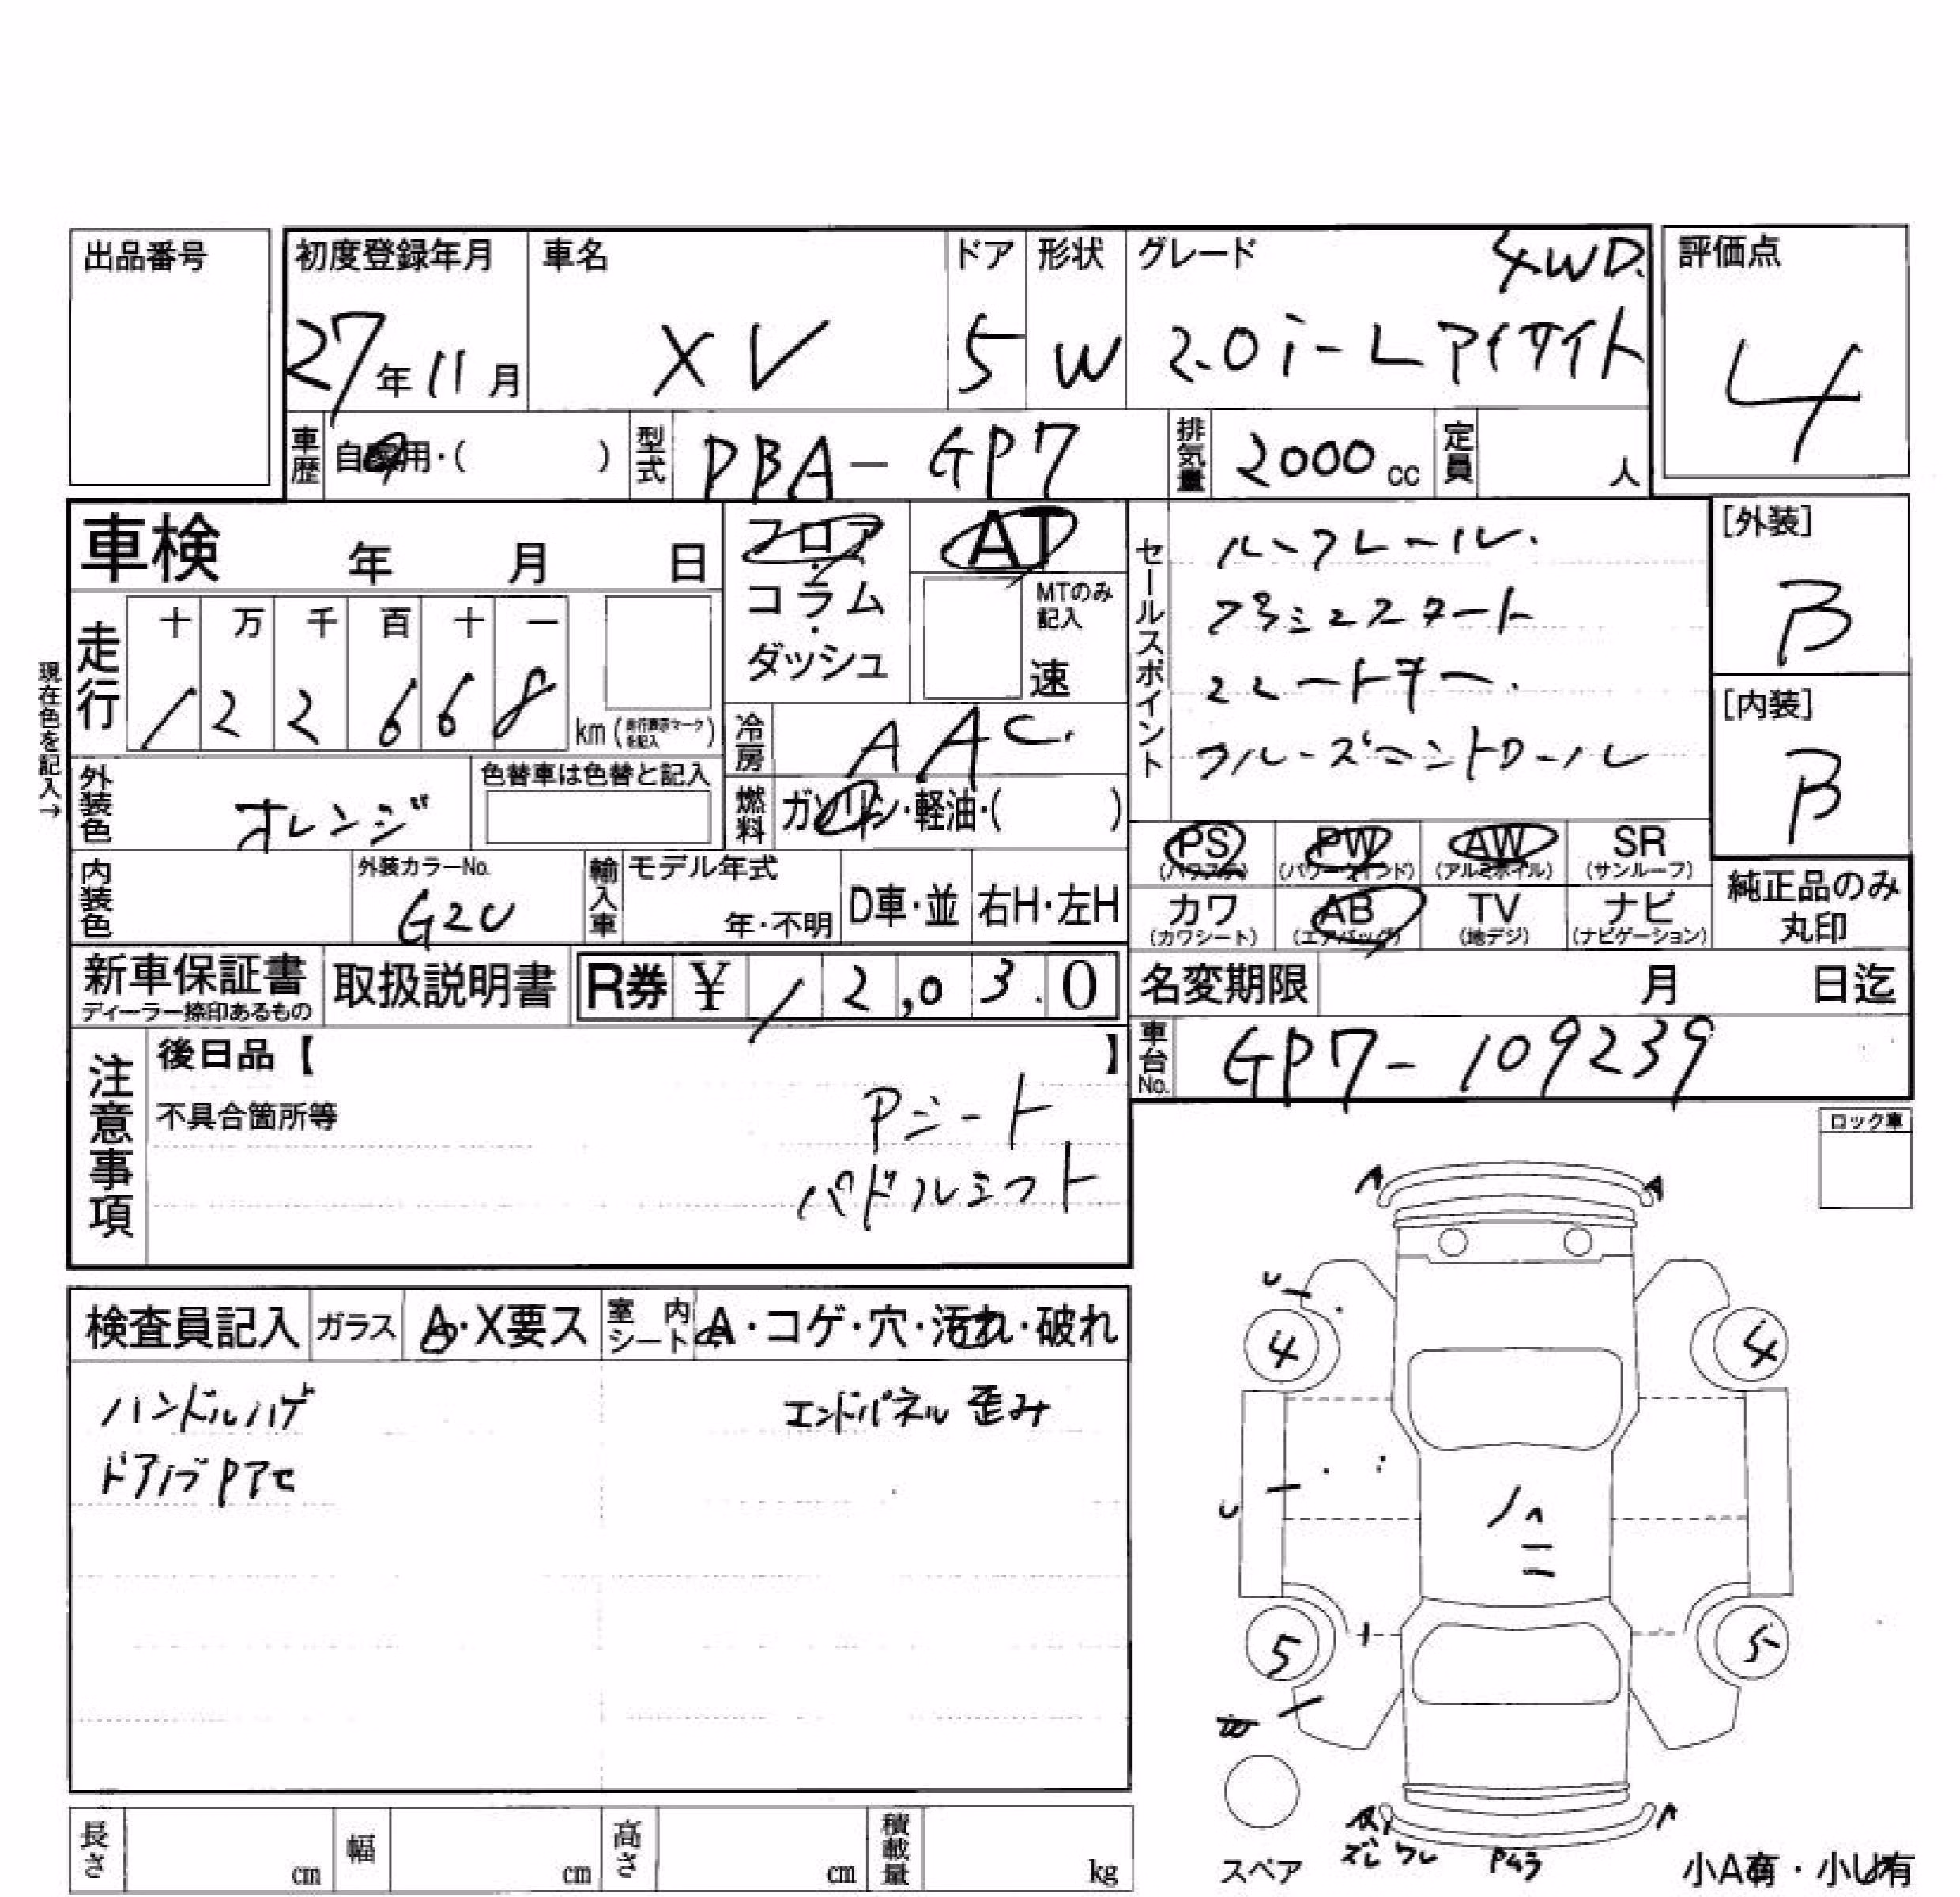 出品番号
初度登録年月 車名 ドア 形状 グレード 4WD. 評価点
27年11月 XV 5 W 2.0i-Lアイサイト 4
車歴 自家用・( ) 型式 DBA-GP7 排気量 2000cc 定員 人
車検 年 月 日
フロア・コラム・ダッシュ
AT
MTのみ記入
速
セールスポイント
ルーフレール.
プッシュスタート
スマートキー.
クルーズコントロール
[外装]
B
[内装]
B
現在色を記入→
走行 十 万 千 百 十 一
1 2 2 6 6 8 km(走行表示マークを記入)
冷房 AAC.
外装色 オレンジ 色替車は色替と記入
燃料 ガソリン・軽油・( )
PS (パワステ) PW (パワーウインド) AW (アルミホイル) SR (サンルーフ)
カワ (カワシート) AB (エアバッグ) TV (地デジ) ナビ (ナビゲーション)
純正品のみ丸印
内装色 外装カラーNo. G2U 輸入車 モデル年式 年・不明 D車・並 右H・左H
新車保証書 ディーラー捺印あるもの 取扱説明書 R券 ¥12,030
名変期限 月 日迄
車台No. GP7-109239
注意事項
後日品【 】
不具合箇所等
Pシート
パドルシフト
ロック車
検査員記入 ガラス A・X要ス 室内シート A・コゲ・穴・汚れ・破れ
ハンドルハゲ エンドパネル歪み
ドアノブPアセ
A A
U
4 4
U
5 5
スペア
A A
ズレ ワレ
小A有・小U有
長さ cm 幅 cm 高さ cm 積載量 kg